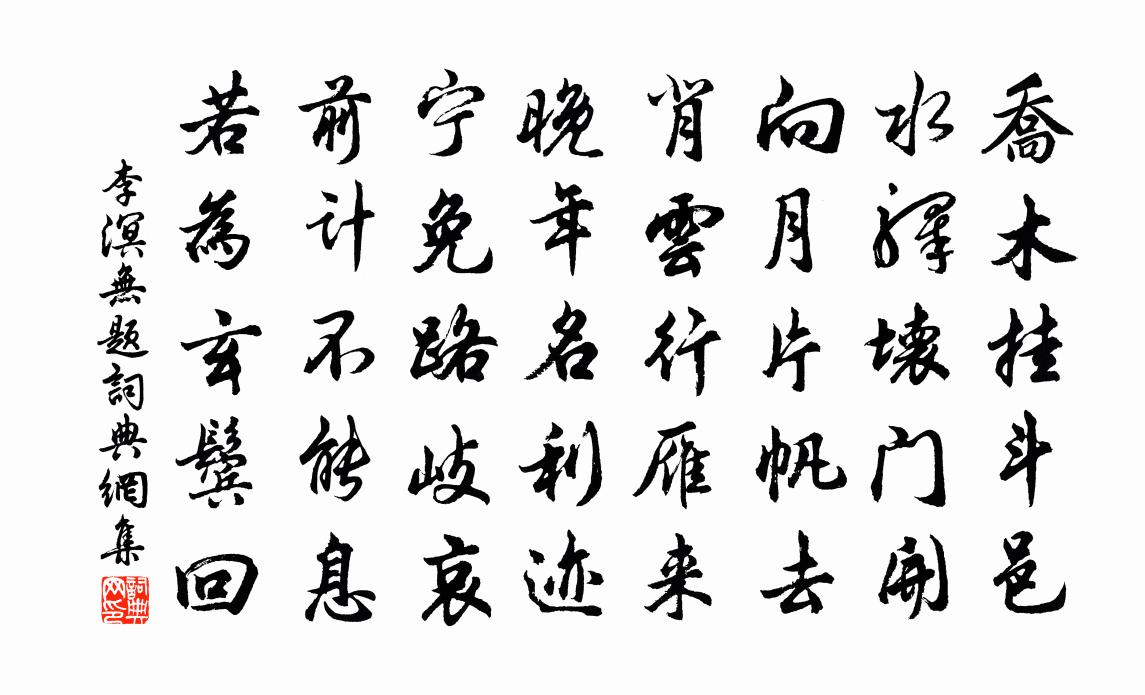 喬木挂斗邑
水驛壊门開
向月片帆去
背雲行雁来
晚年名利迹
宁免路岐哀
前计不能息
若為玄鬓回
李溟無题詞典網集
詞典网印